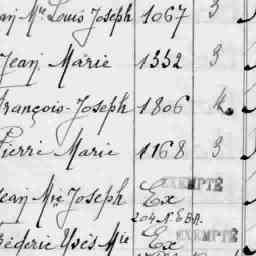 an Mie Louis Joseph 1067 3
Jean Marie 1332 3
François-Joseph 1806
Pierre Marie 1168 3
Jean Mie Joseph Ex EXEMPTÉ
204 N. E.B.A.
Frédéric Yves Mie Ex EXEMPTÉ